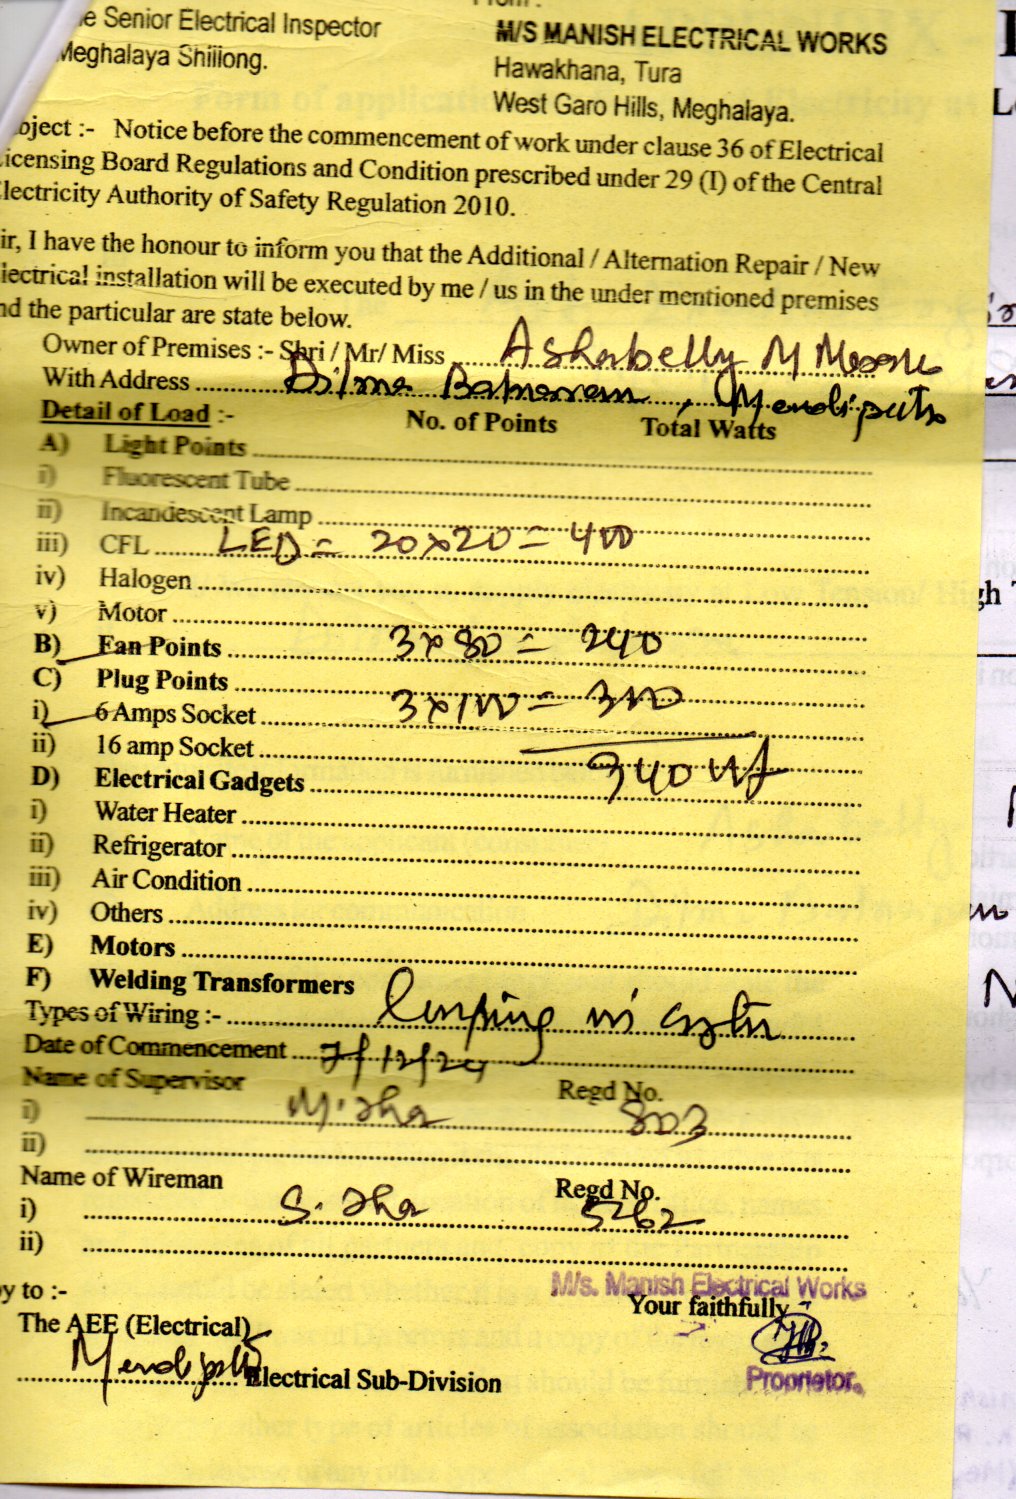 e Senior Electrical Inspector
Meghalaya Shillong.
From :
M/S MANISH ELECTRICAL WORKS
Hawakhana, Tura
West Garo Hills, Meghalaya.
bject :- Notice before the commencement of work under clause 36 of Electrical
Licensing Board Regulations and Condition prescribed under 29 (I) of the Central
Electricity Authority of Safety Regulation 2010.
ir, I have the honour to inform you that the Additional / Alternation Repair / New
lectrical installation will be executed by me / us in the under mentioned premises
nd the particular are state below.
Owner of Premises :- Shri / Mr/ Miss Asharbelly M
With Address Dilma , Mendipather
Detail of Load :- No. of Points Total Watts
A) Light Points
i) Fluorescent Tube
ii) Incandescent Lamp
iii) CFL LED = 20x20 = 400
iv) Halogen
v) Motor
B) Fan Points 3x80 = 240
C) Plug Points
i) 6 Amps Socket 3x100 = 300
ii) 16 amp Socket 940 W
D) Electrical Gadgets
i) Water Heater
ii) Refrigerator
iii) Air Condition
iv) Others
E) Motors
F) Welding Transformers
Types of Wiring :-
Date of Commencement 7/12/24
Name of Supervisor Regd No.
i) M. Jha 803
ii)
Name of Wireman Regd No.
i) S. Jha 5262
ii)
y to :-
M/s. Manish Electrical Works
Your faithfully
The AEE (Electrical)
Electrical Sub-Division
Proprietor